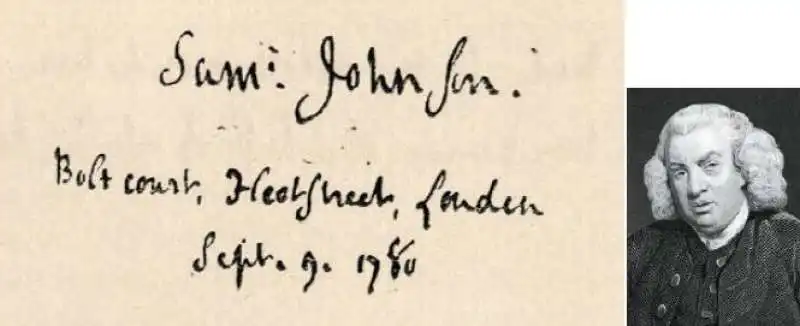 Sam: Johnson.
Bolt court, Fleetstreet, London
Sept. 9. 1780